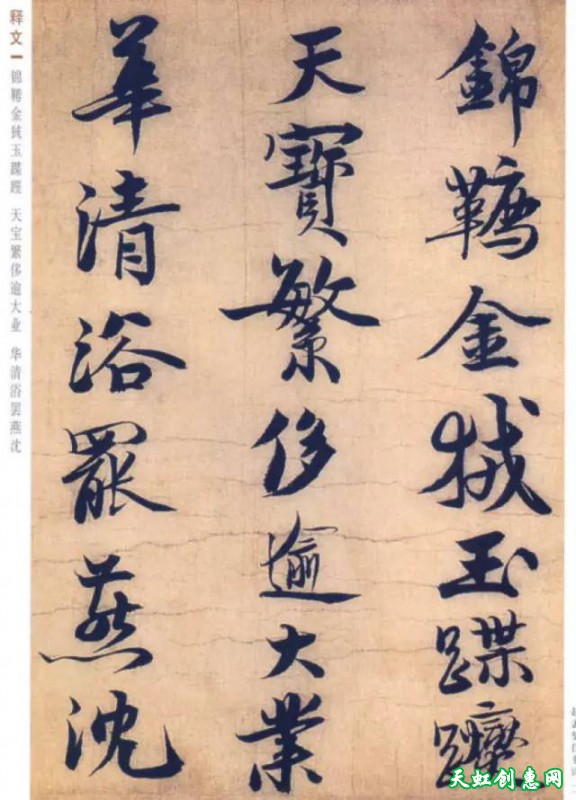 錦韉金㧞玉蹀躞
天寶繁侈逾大業
華清浴罷燕沈
释文
锦鞯金 玉蹀躞 天宝繁侈逾大业 华清浴罢燕沈
天虹创惠网